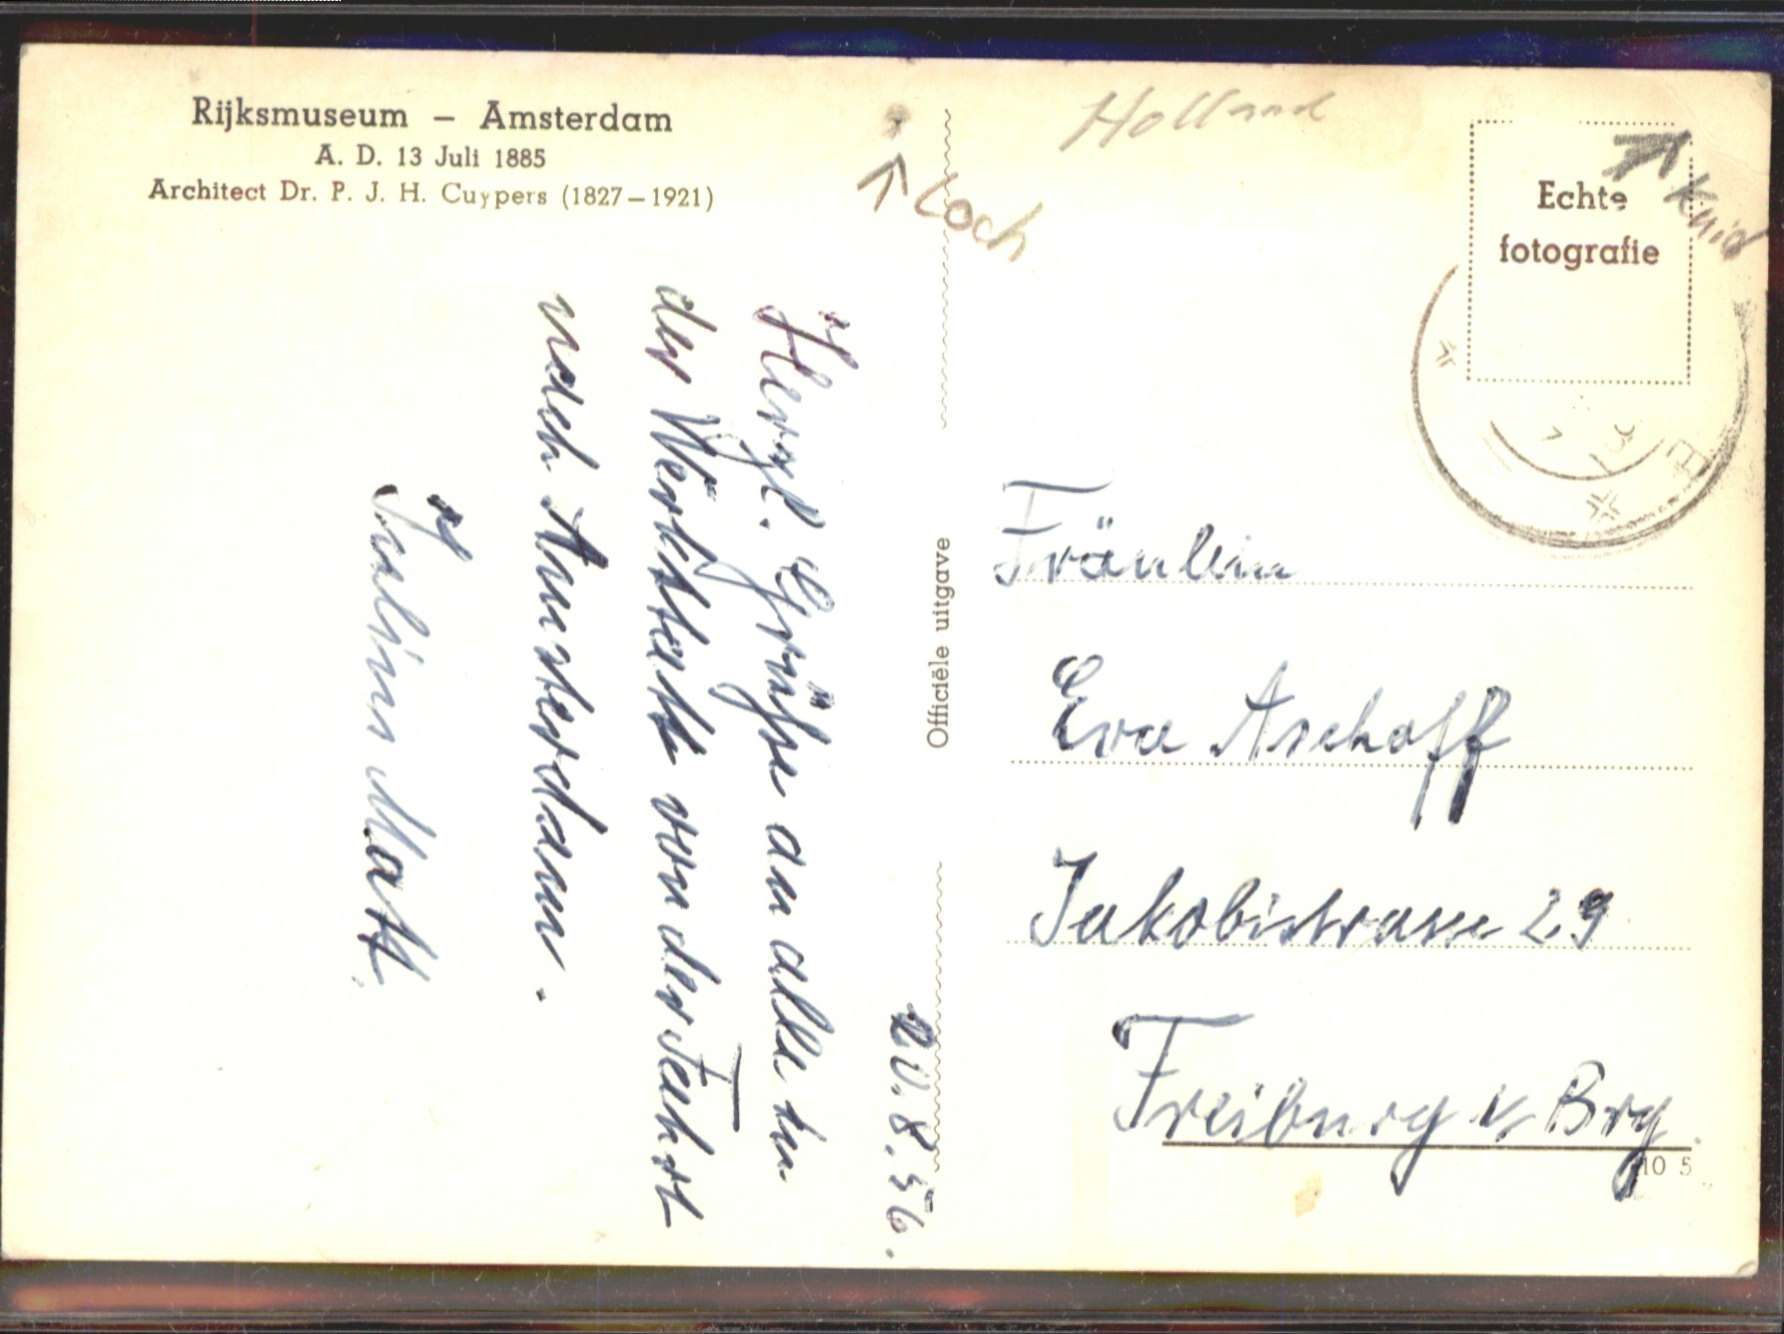 Rijksmuseum – Amsterdam
A. D. 13 Juli 1885
Architect Dr. P. J. H. Cuypers (1827–1921)
Holland
Loch
Knick
Echte
fotografie
20.8.56.
Herzl. Grüße an alle in
der Werkstatt von der Fahrt
nach Amsterdam.
Julius Matt
Officiële uitgave
Fräulein
Eva Aschoff
Jakobistrasse 29
Freiburg i/ Brg.
10 5